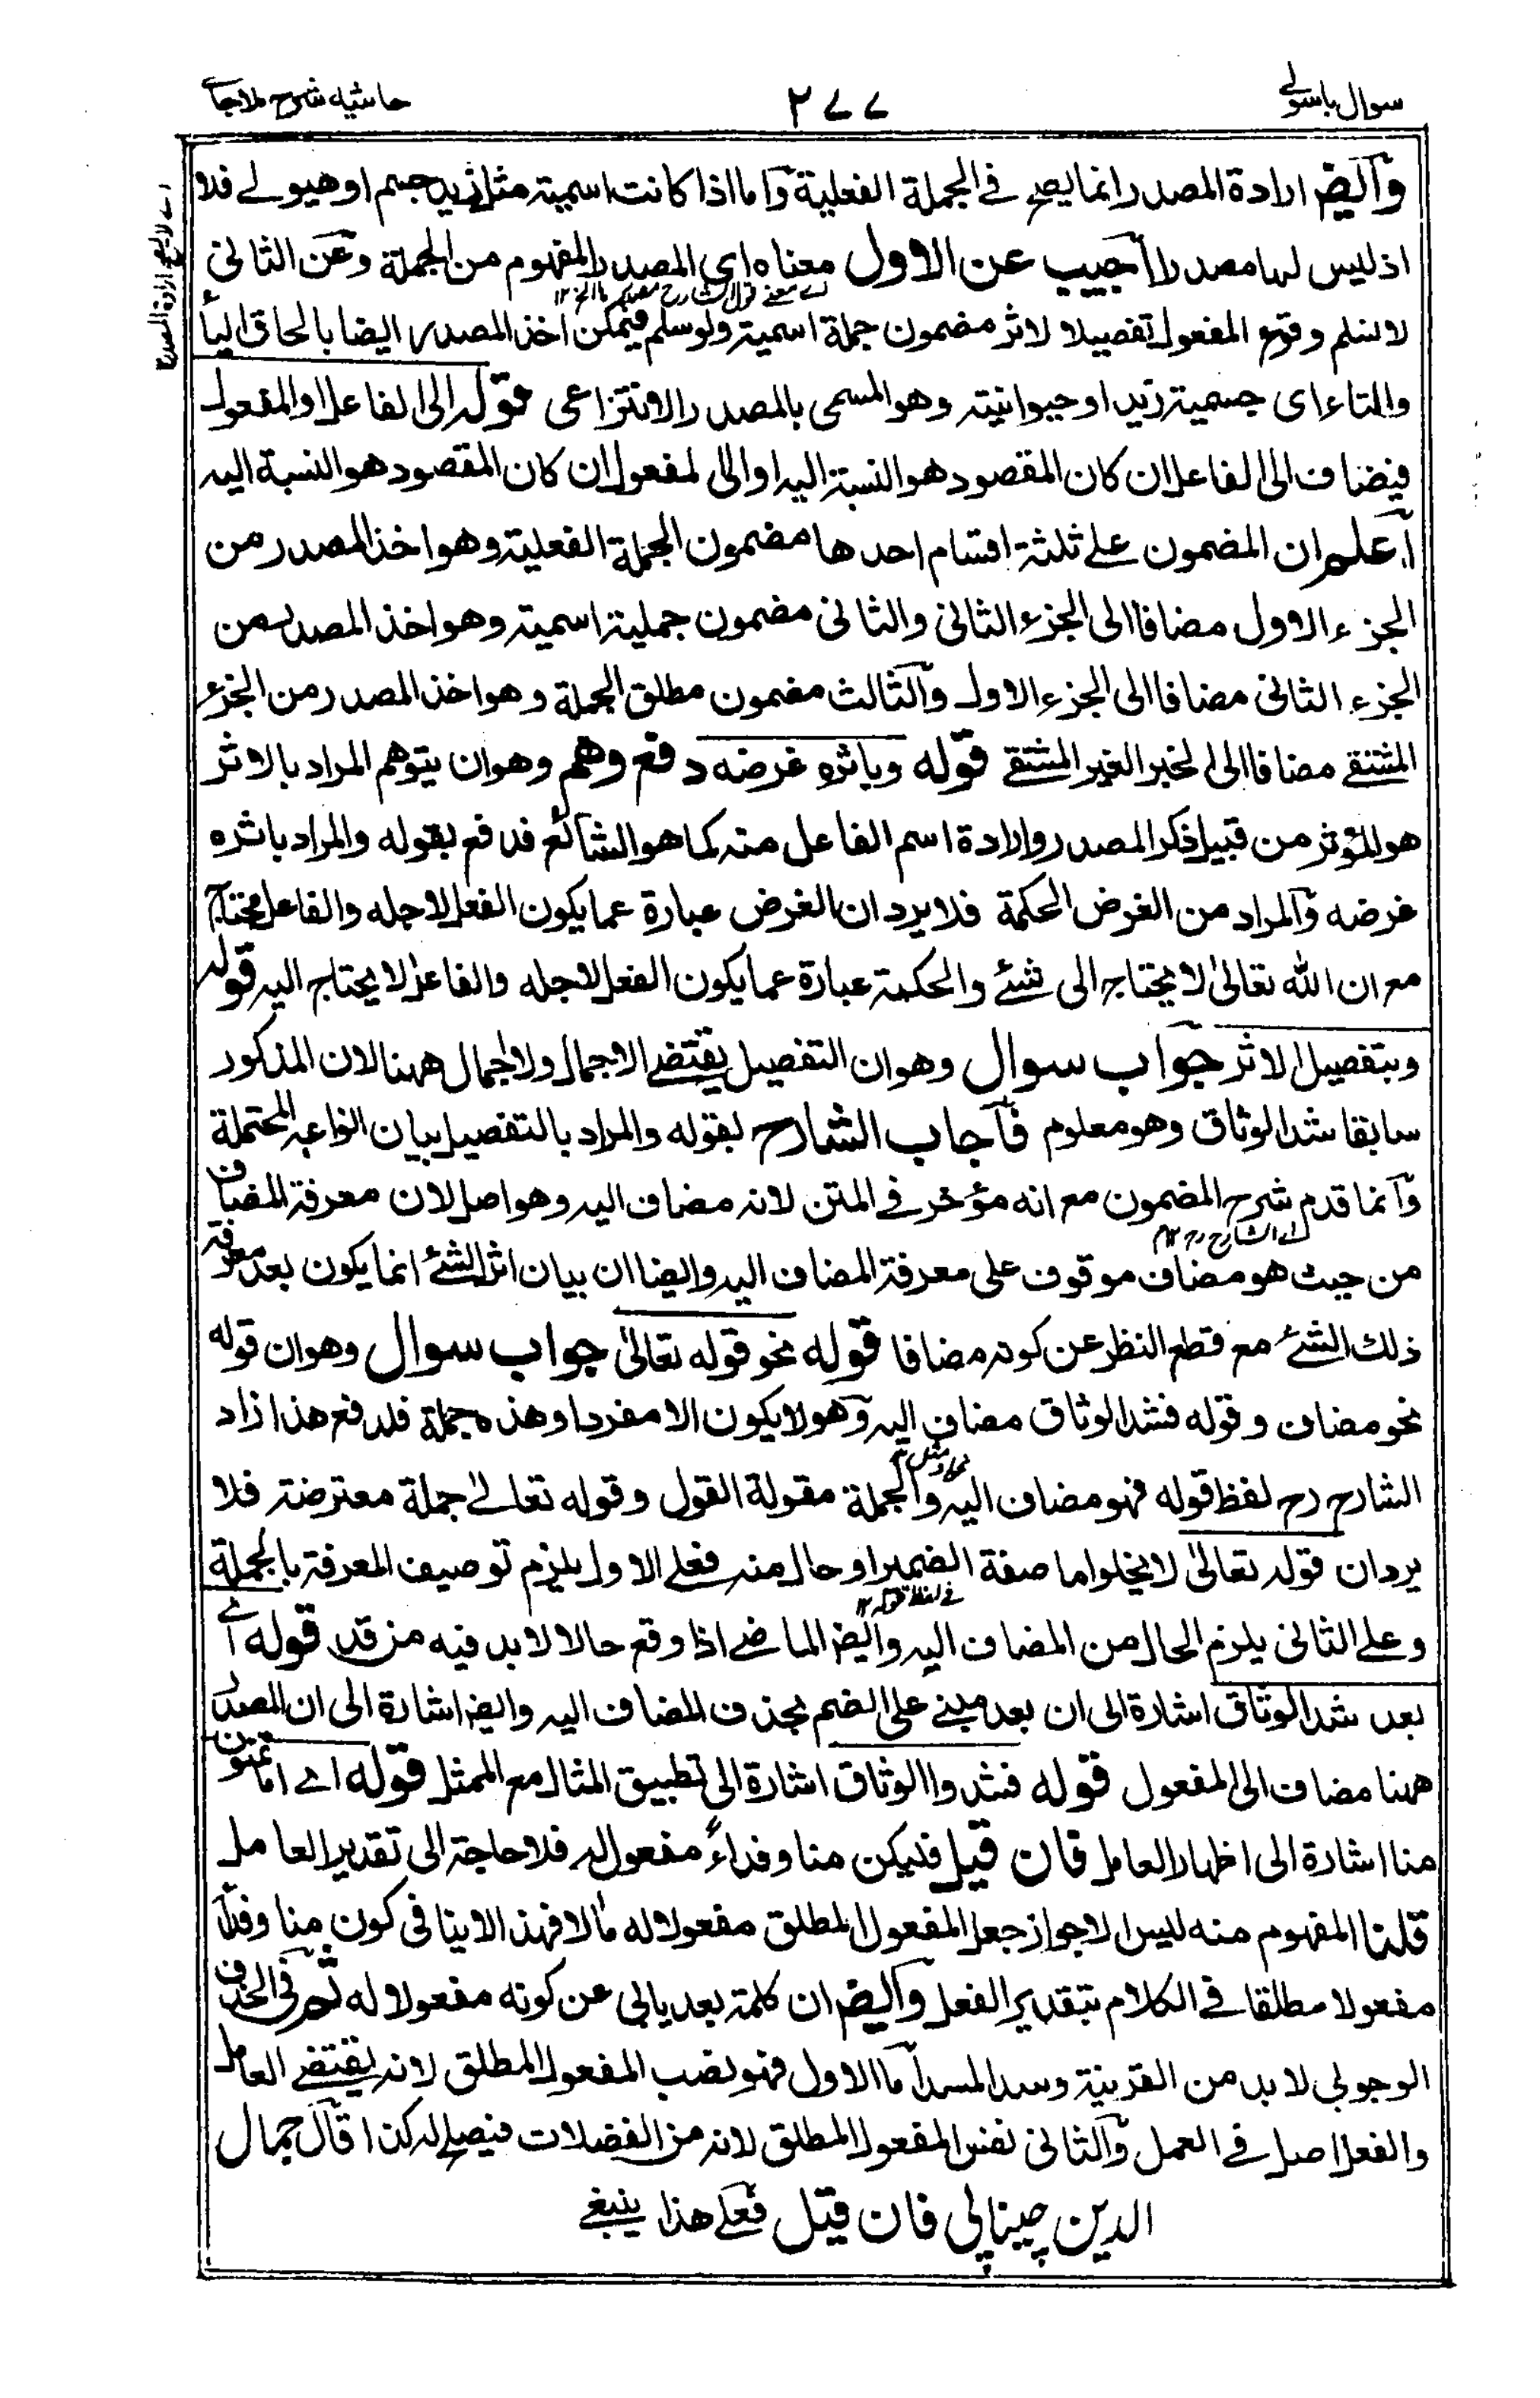 سوال باسولی ٢٧٧ حاشیه شرح ملاجامے
وآیضا ارادة المصدر انما یصح فے الجملة الفعلیة وآما اذا کانت اسمیة مثل زید جسم او هیولے فلا
اے لا یصح ارادة المصدر ١٢
اذ لیس لها مصدر اجیب عن الاول معناه ای المصدر المفهوم من الجملة وعن الثانی
اے معنے قول الشارح مضمون الخ ١٢
لا نسلم وقوع المفعول تفصیلا لاثر مضمون جملة اسمیة ولو سلم فیمکن اخذ المصدر ایضا بالحاق الیاء
والتاء ای جسمیة زید او حیوانیته وهو المسمی بالمصدر الانتزاعی قوله الی الفاعل او المفعول
فیضاف الی الفاعل ان کان المقصود هو النسبة الیه او الی المفعول ان کان المقصود هو النسبة الیه
آعلم ان المضمون علے ثلثة اقسام احدها مضمون الجملة الفعلیة وهو اخذ المصدر من
الجزء الاول مضافا الی الجزء الثانی والثانی مضمون جملیة اسمیة وهو اخذ المصدر من
الجزء الثانی مضافا الی الجزء الاول وآلثالث مضمون مطلق الجملة وهو اخذ المصدر من الجزء
المشتقے مضافا الی الخبر الغیر المشتقے قوله وباثره غرضه دفع وهم وهو ان یتوهم المراد بالاثر
هو المؤثر من قبیل ذکر المصدر وارادة اسم الفاعل منه کما هو الشائع فدفع بقوله والمراد باثره
غرضه وآلمراد من الغرض الحکمة فلا یرد ان الغرض عبارة عما یکون الفعل لاجله والفاعل محتاج
مع ان الله تعالیٰ لا یحتاج الی شئے والحکمة عبارة عما یکون الفعل لاجله والفاعل لا یحتاج الیه قوله
وبتفصیل الاثر جواب سوال وهو ان التفصیل یقتضے الاجمال ولا اجمال ههنا لان المذکور
سابقا شد الوثاق وهو معلوم فآجاب الشارح بقوله والمراد بالتفصیل بیان انواعه المحتملة
وآنما قدم شرح المضمون مع انه مؤخر فے المتن لانه مضاف الیه وهو اصل لان معرفة المضاف
اے الشارح رح ١٢
من حیث هو مضاف موقوف علی معرفة المضاف الیه وایضا ان بیان اثر الشئے انما یکون بعد معرفة
ذلك الشئے مع قطع النظر عن کونه مضافا قوله نحو قوله تعالیٰ جواب سوال وهو ان قوله
نحو مضاف وقوله فشد الوثاق مضاف الیه وآهو لا یکون الا مفردا وهذه جملة فلدفع هذا زاد
الشارح رح لفظ قوله فهو مضاف الیه والجملة مقولة القول وقوله تعالےٰ جملة معترضة فلا
یرد ان قوله تعالیٰ لا یخلوا ما صفة الضمیر او حال منه فعلے الاول یلزم توصیف المعرفة بالجملة
فے لفظ قوله ١٢
وعلے الثانی یلزم الحال من المضاف الیه وایضا الماضے اذا وقع حالا لا بد فیه من قد قوله اے
بعد شد الوثاق اشارة الی ان بعد مبنے علی الضم بحذف المضاف الیه وایضا اشارة الی ان المصدر
ههنا مضاف الی المفعول قوله فشدوا الوثاق اشارة الی تطبیق المثال مع الممثل قوله اے اما تمنون
منا اشارة الی اظهار العامل فان قیل فلیکن منا وفداءً مفعول له فلا حاجة الی تقدیر العامل
قلنا المفهوم منه لیس الا جواز جعل المفعول المطلق مفعولا له مآلا فهذا لا ینافی کون منا وفداء
مفعولا مطلقا فے الکلام بتقدیر الفعل وآیضا ان کلمة بعد یابی عن کونه مفعولا له ثم فی الحذف
الوجوبی لا بد من القرینة وسد المسد آما الاول فهو نصب المفعول المطلق لانه یقتضے العامل
والفعل اصل فے العمل وآلثانی نفس المفعول المطلق لانه من الفضلات فیصلح له کذا قال جمال
الدین چیناپی فان قیل فعلےٰ هذا ینبغے